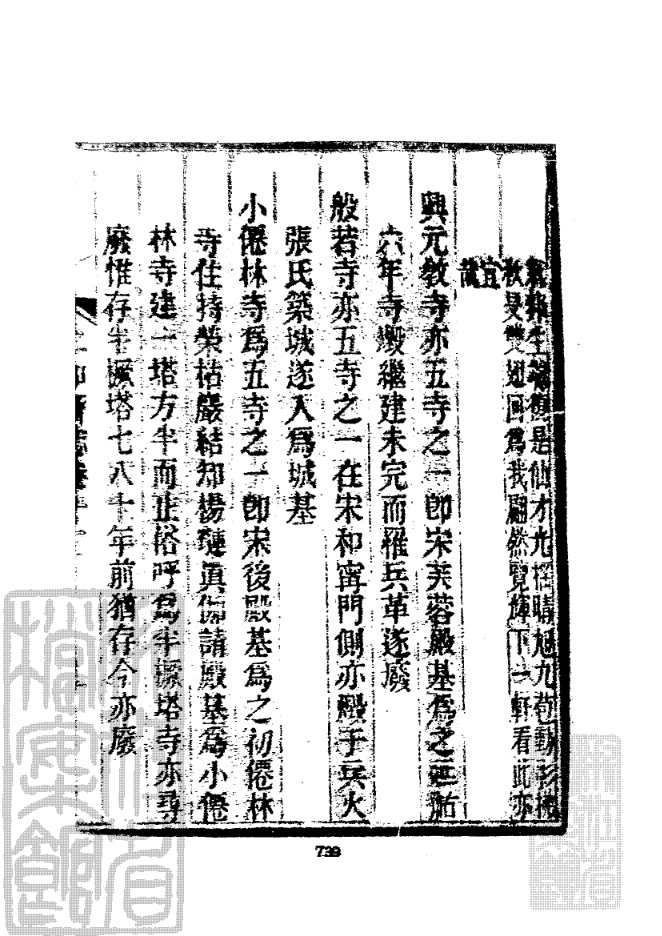 是仙才九搖晴旭九苞動彩機
秋旻雙翅回爲我翩然覽煇下一軒看此亦
宜識
興元教寺亦五寺之一卽宋芙蓉殿基爲之延祐
六年寺燬繼建未完而罹兵革遂廢
般若寺亦五寺之一在宋和寧門側亦燬于兵火
張氏築城遂入爲城基
小僊林寺爲五寺之一卽宋後殿基爲之初僊林
寺住持榮枯嚴結知楊璉眞伽請殿基爲小僊
林寺建一塔方半而止俗呼爲半橛塔寺亦尋
廢惟存半橛塔七八十年前猶存今亦廢
739